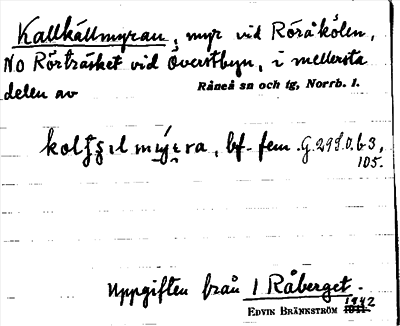 Kallkällmyran, myr vid Röråkölen,
NO Rörträsket vid Överstbyn, i mellersta
delen av Råneå sn och tg, Norrb. l.
bf. fem. G.298.0.63,
105.
Uppgiften från 1 Råberget.
EDVIK BRÄNKSTRÖM 1942